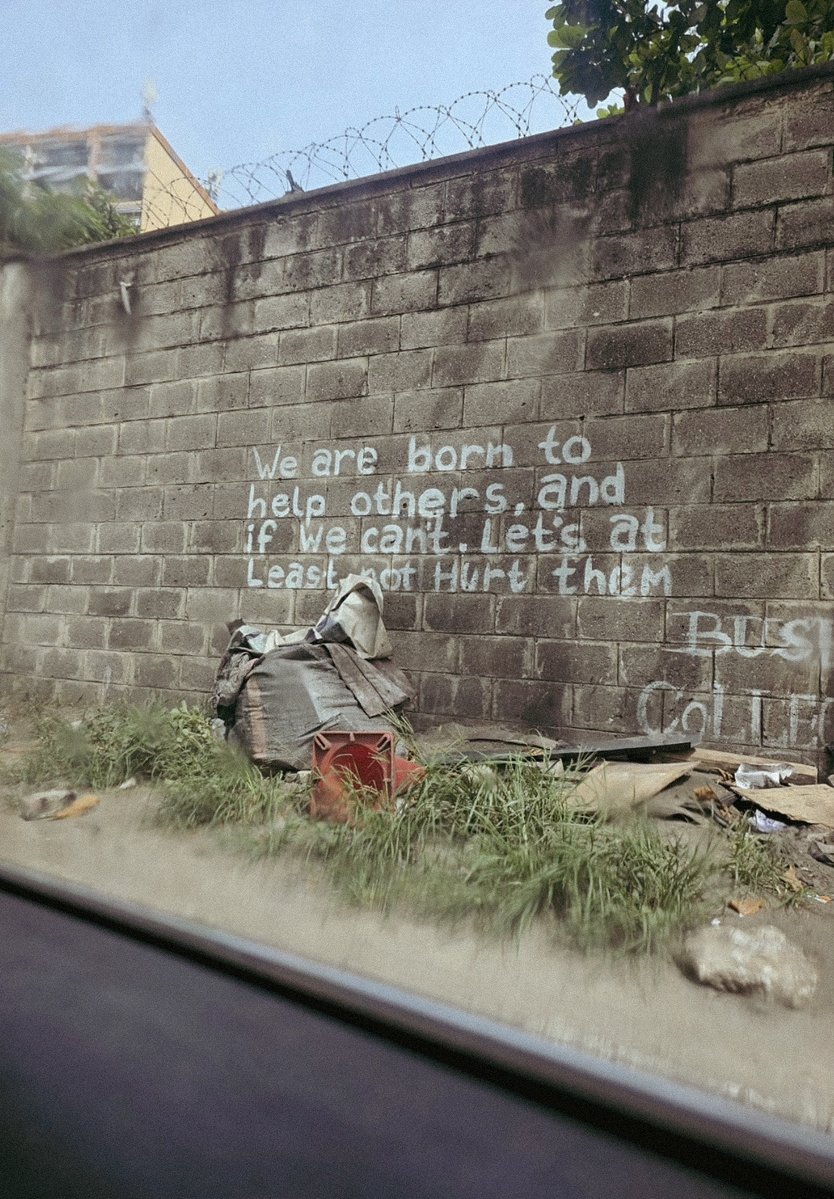 We are born to
help others, and
if we can't. Let's at
Least not Hurt them